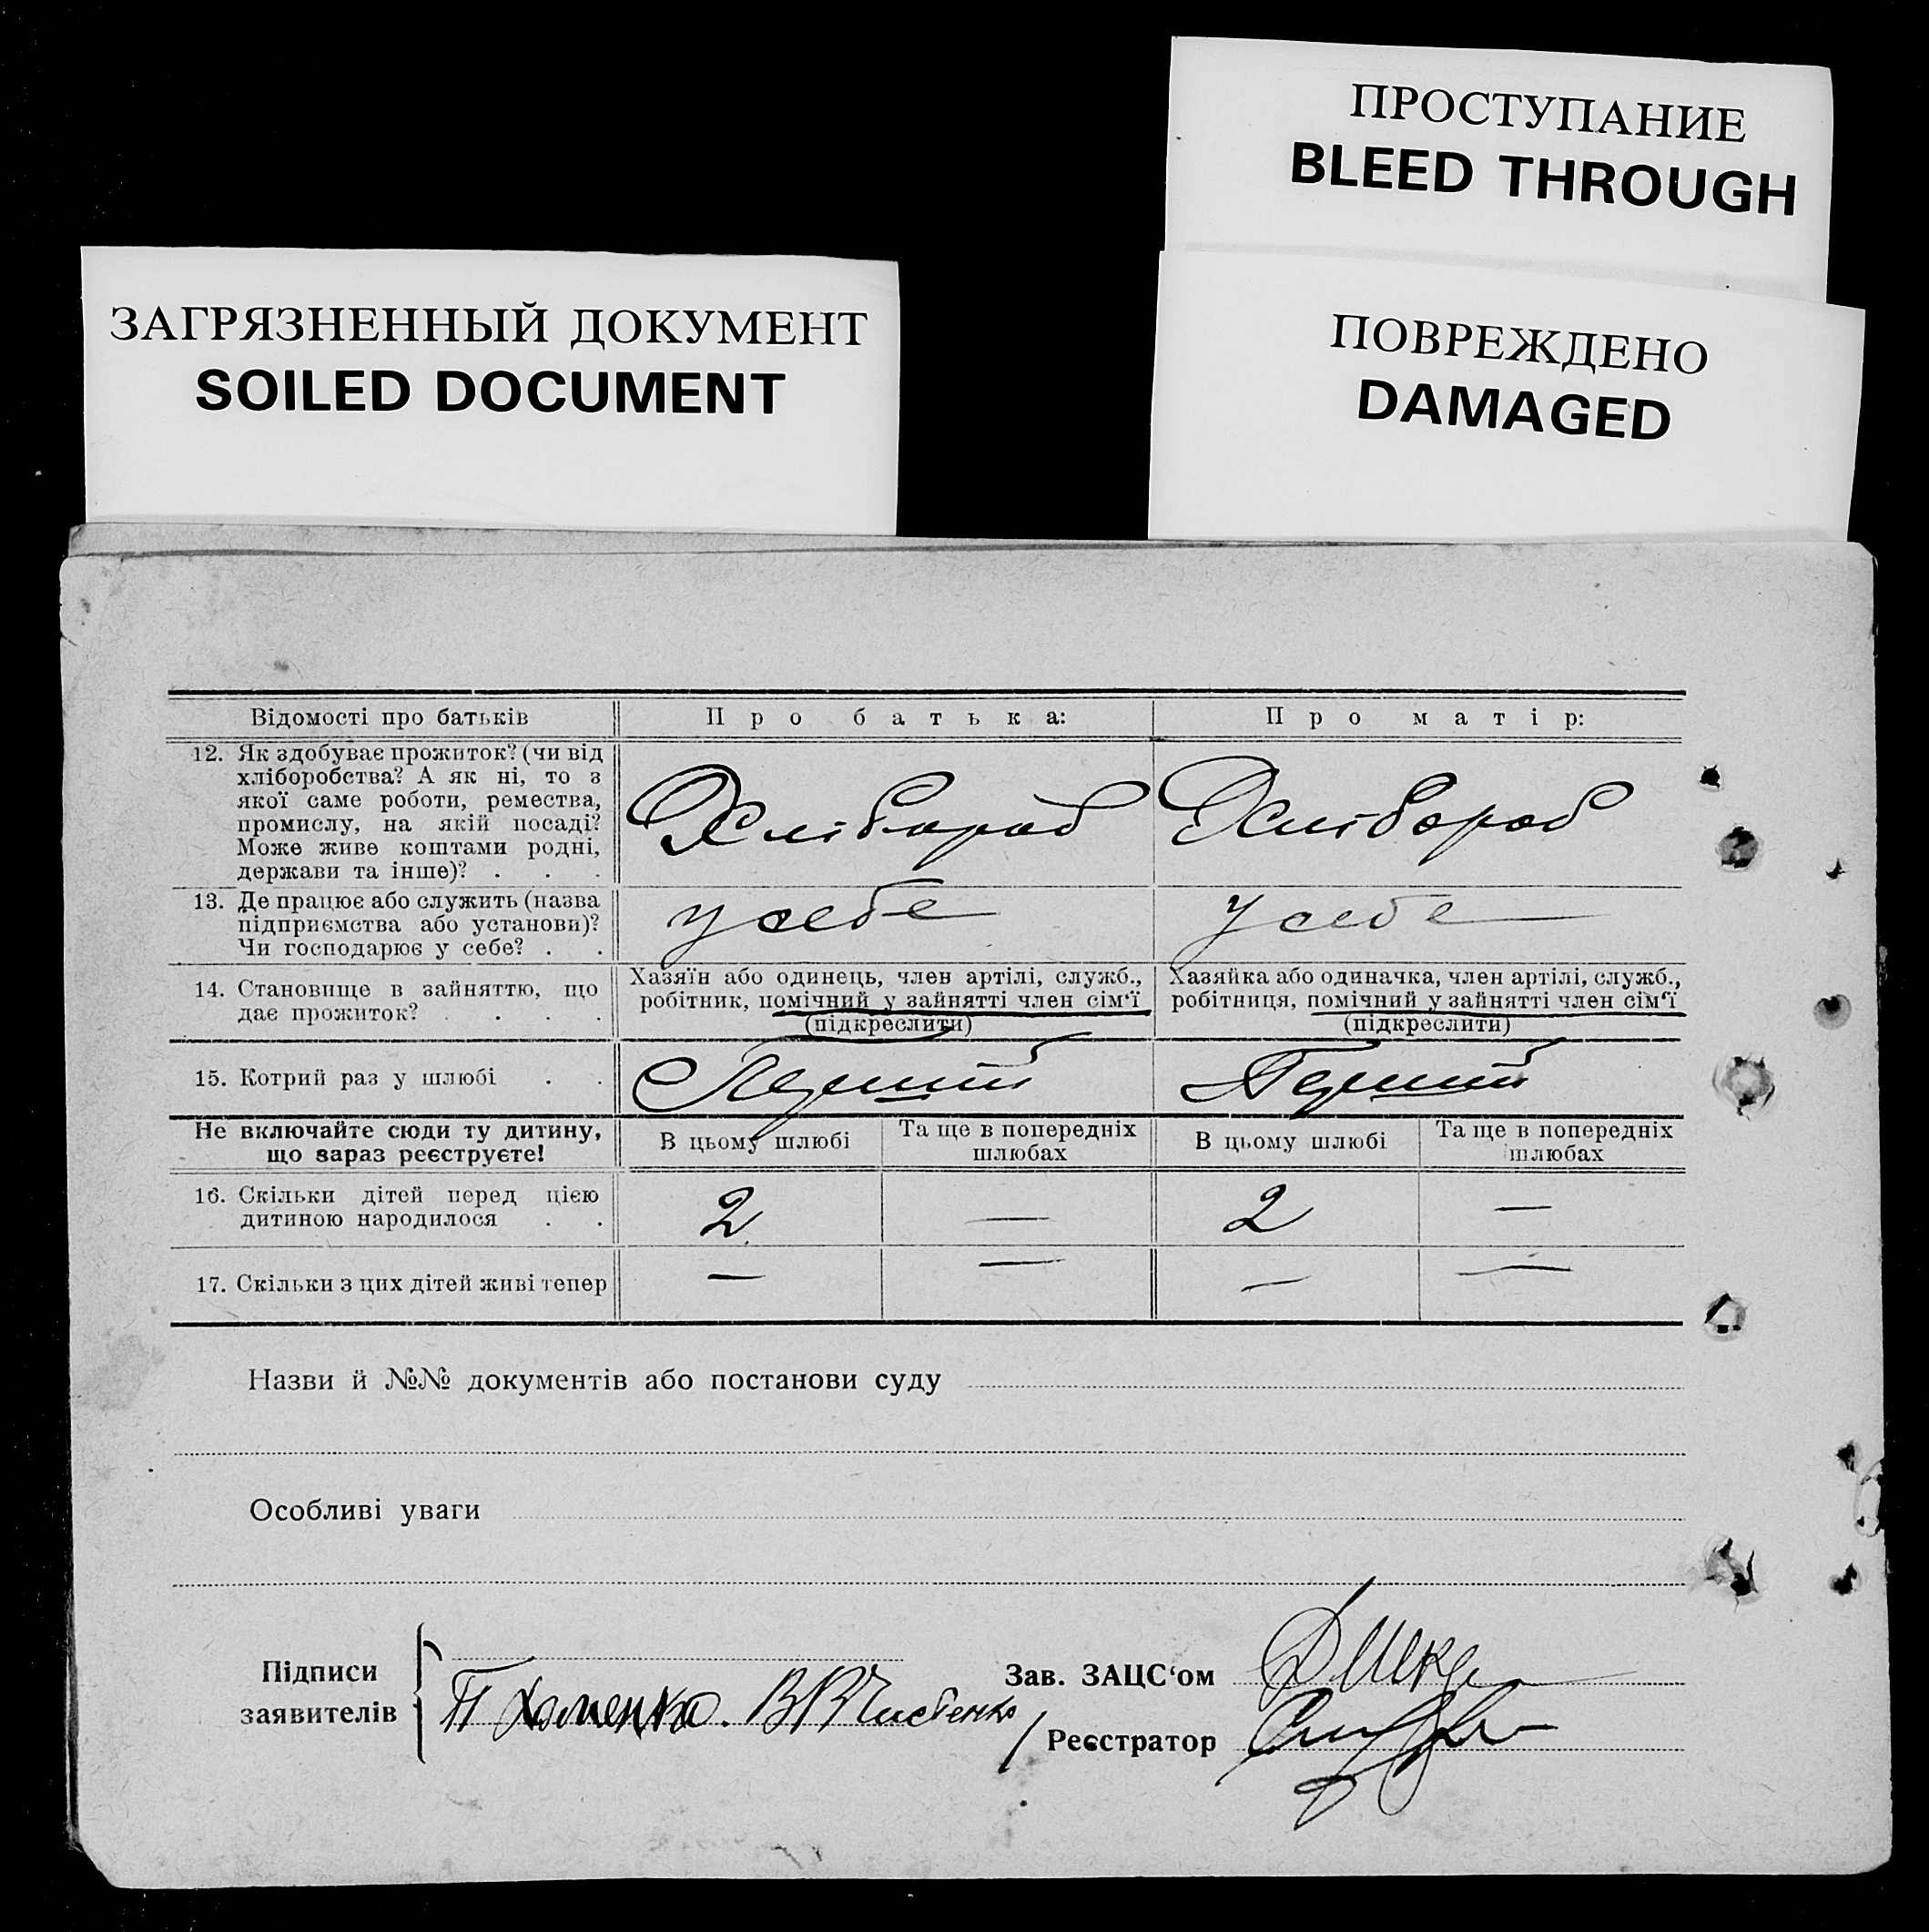 ПРОСТУПАНИЕ
BLEED THROUGH
ЗАГРЯЗНЕННЫЙ ДОКУМЕНТ
SOILED DOCUMENT
ПОВРЕЖДЕНО
DAMAGED
Відомості про батьків Про батька: Про матір:
12. Як здобуває прожиток? (чи від
хліборобства? А як ні, то з
якої саме роботи, ремества,
промислу, на якій посаді?
Може живе коштами родні,
держави та інше)? . . .
Хлібороб Хлібороб
13. Де працює або служить (назва
підприємства або установи)?
Чи господарює у себе? . .
у себе у себе
14. Становище в зайняттю, що
дає прожиток? . . . .
Хазяїн або одинець, член артілі, служб.,
робітник, помічний у зайнятті член сім'ї
(підкреслити)
Хазяйка або одиначка, член артілі, служб.,
робітниця, помічний у зайнятті член сім'ї
(підкреслити)
15. Котрий раз у шлюбі . .
Не включайте сюди ту дитину,
що зараз реєструєте!
В цьому шлюбі
Та ще в попередніх
шлюбах
В цьому шлюбі
Та ще в попередніх
шлюбах
16. Скільки дітей перед цією
дитиною народилося . .
2 — 2 —
17. Скільки з цих дітей живі тепер — — — —
Назви й №№ документів або постанови суду
Особливі уваги
Підписи
заявителів
П Хоменко.
Зав. ЗАЦС'ом
Реєстратор